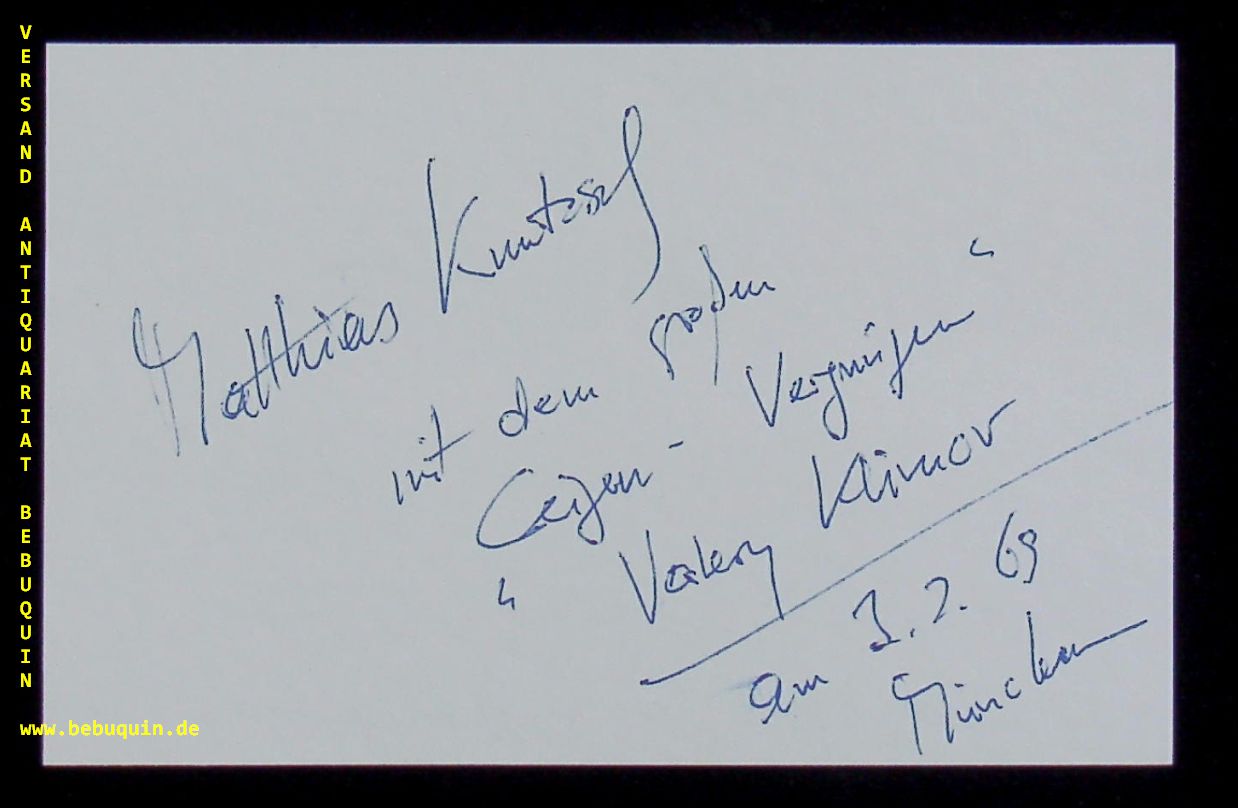 VERSAND ANTIQUARIAT BEBUQUIN
www.bebuquin.de
Matthias
mit dem großen
Geigen- Vergnügen“
„ Valery Klimov
am 3. 2. 69
München